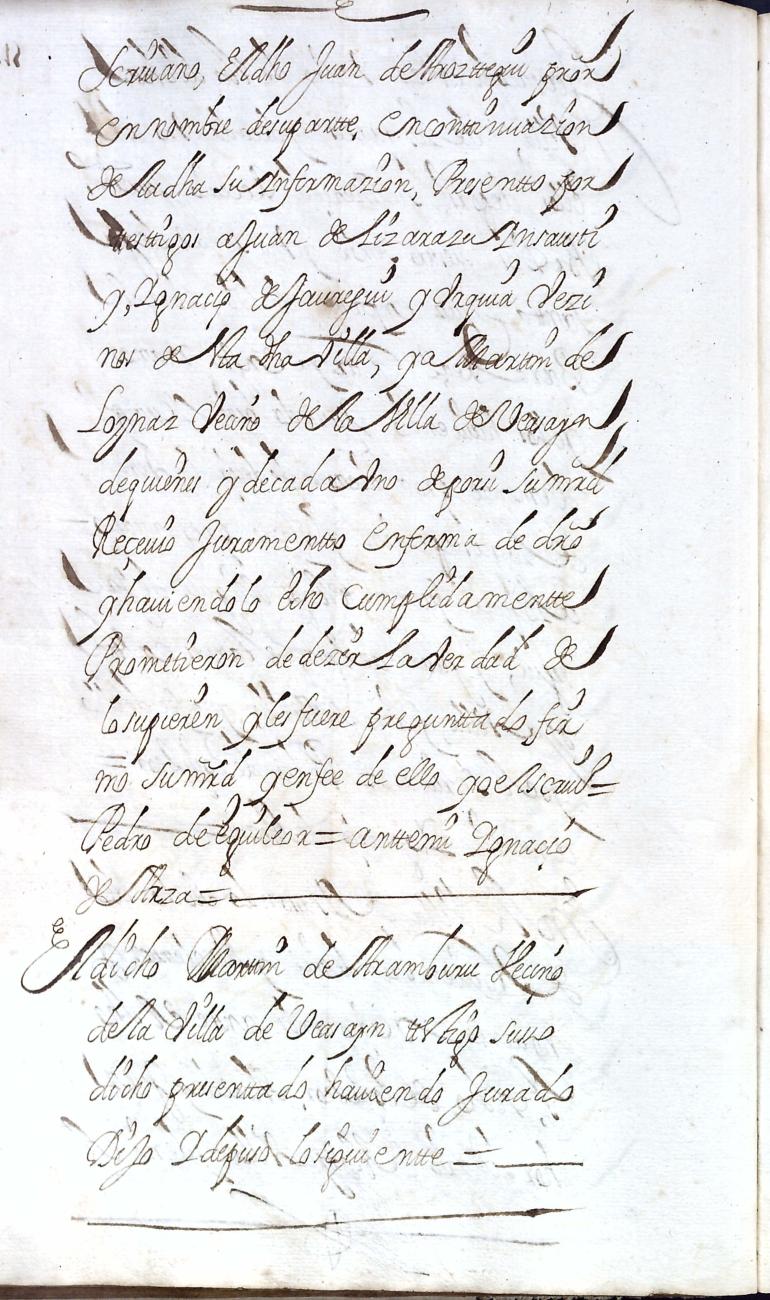 Scriuano, El dho Juan de Aroztegui pror
en nombre de su partte, en continuazion
de la dha su Informazion, Presentto por
testtigos a Juan de Lizarazu Insausti
y, Ignacio de Jauregui y Vrquia Vezi
nos de Vta dha Villa, y a Martin de
Loynaz Vecino de la Villa de Veasayn
de quienes y de cada Vno de por si su mrd
Recevio Juramentto en forma de dro
y haviendolo echo Cumplidamentte
Prometieron de dezir La Verdad de
lo supieren y les fuere pregunttado fir
mo su mrd y en fee de ello yo el scriu=
Pedro de eguileor = antte mi Ignacio
de Arza =
El dicho Martin de Aramburu Vecino
de la Villa de Veasayn testigo suso
dicho presenttado haviendo Jurado
Dijo I depuso lo siguientte =